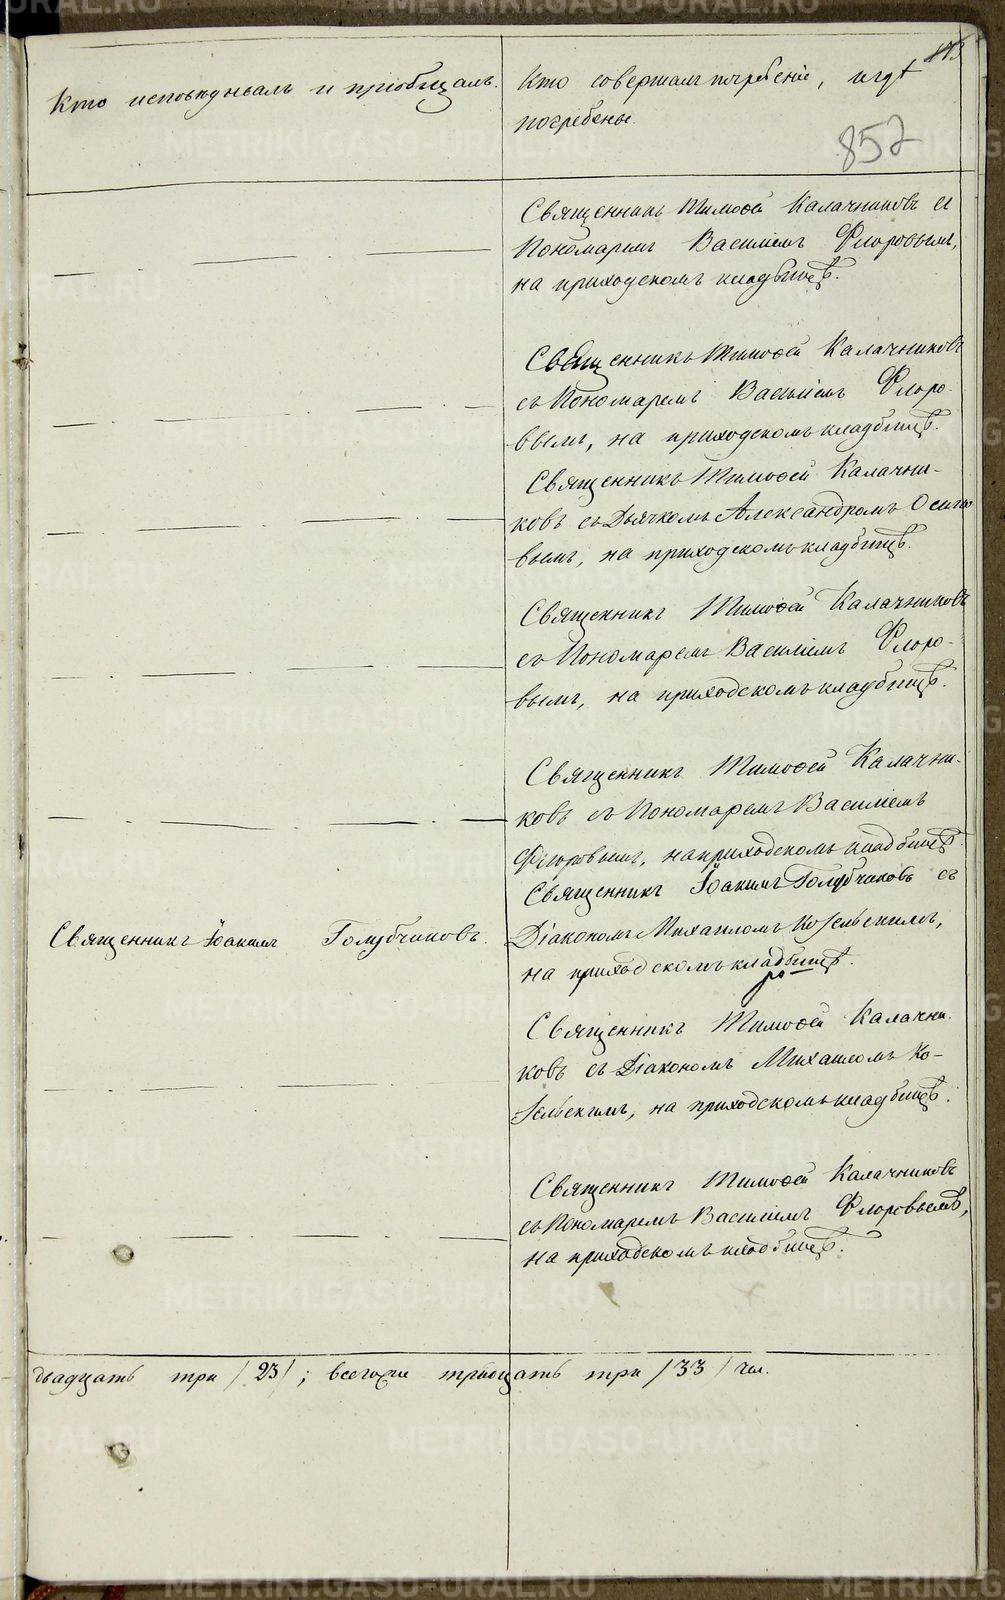 Кто исповѣдывалъ и пріобщалъ.
Кто совершалъ погребеніе, и гдѣ
погребены.
852
Священникъ Тимоѳей Калачниковъ съ
Пономаремъ Василіемъ Флоровымъ,
на приходскомъ кладбищѣ.
Священникъ Тимоѳей Калачниковъ
съ Пономаремъ Василіемъ Флоро-
вымъ, на приходскомъ кладбищѣ.
Священникъ Тимоѳей Калачни-
ковъ съ Дьячкомъ Александромъ Осипо
вымъ, на приходскомъ кладбищѣ.
Священникъ Тимоѳей Калачниковъ
съ Пономаремъ Василіемъ Флоро-
вымъ, на приходскомъ кладбищѣ.
Священникъ Тимоѳей Калачни-
ковъ съ Пономаремъ Василіемъ
Флоровымъ, на приходскомъ кладбищѣ.
Священникъ Іоакимъ Голубчиковъ.
Священникъ Іоакимъ Голубчиковъ съ
Діакономъ Михаиломъ Козельскимъ,
на приходскомъ кладбищѣ.
Священникъ Тимоѳей Калачни-
ковъ съ Діакономъ Михаиломъ Ко-
зельскимъ, на приходскомъ кладбищѣ.
Священникъ Тимоѳей Калачниковъ
съ Пономаремъ Василіемъ Флоровымъ,
на приходскомъ кладбищѣ.
двадцать три /23/; всего же тридцать три /33/ чел.
METRIKI.GASO-URAL.RU